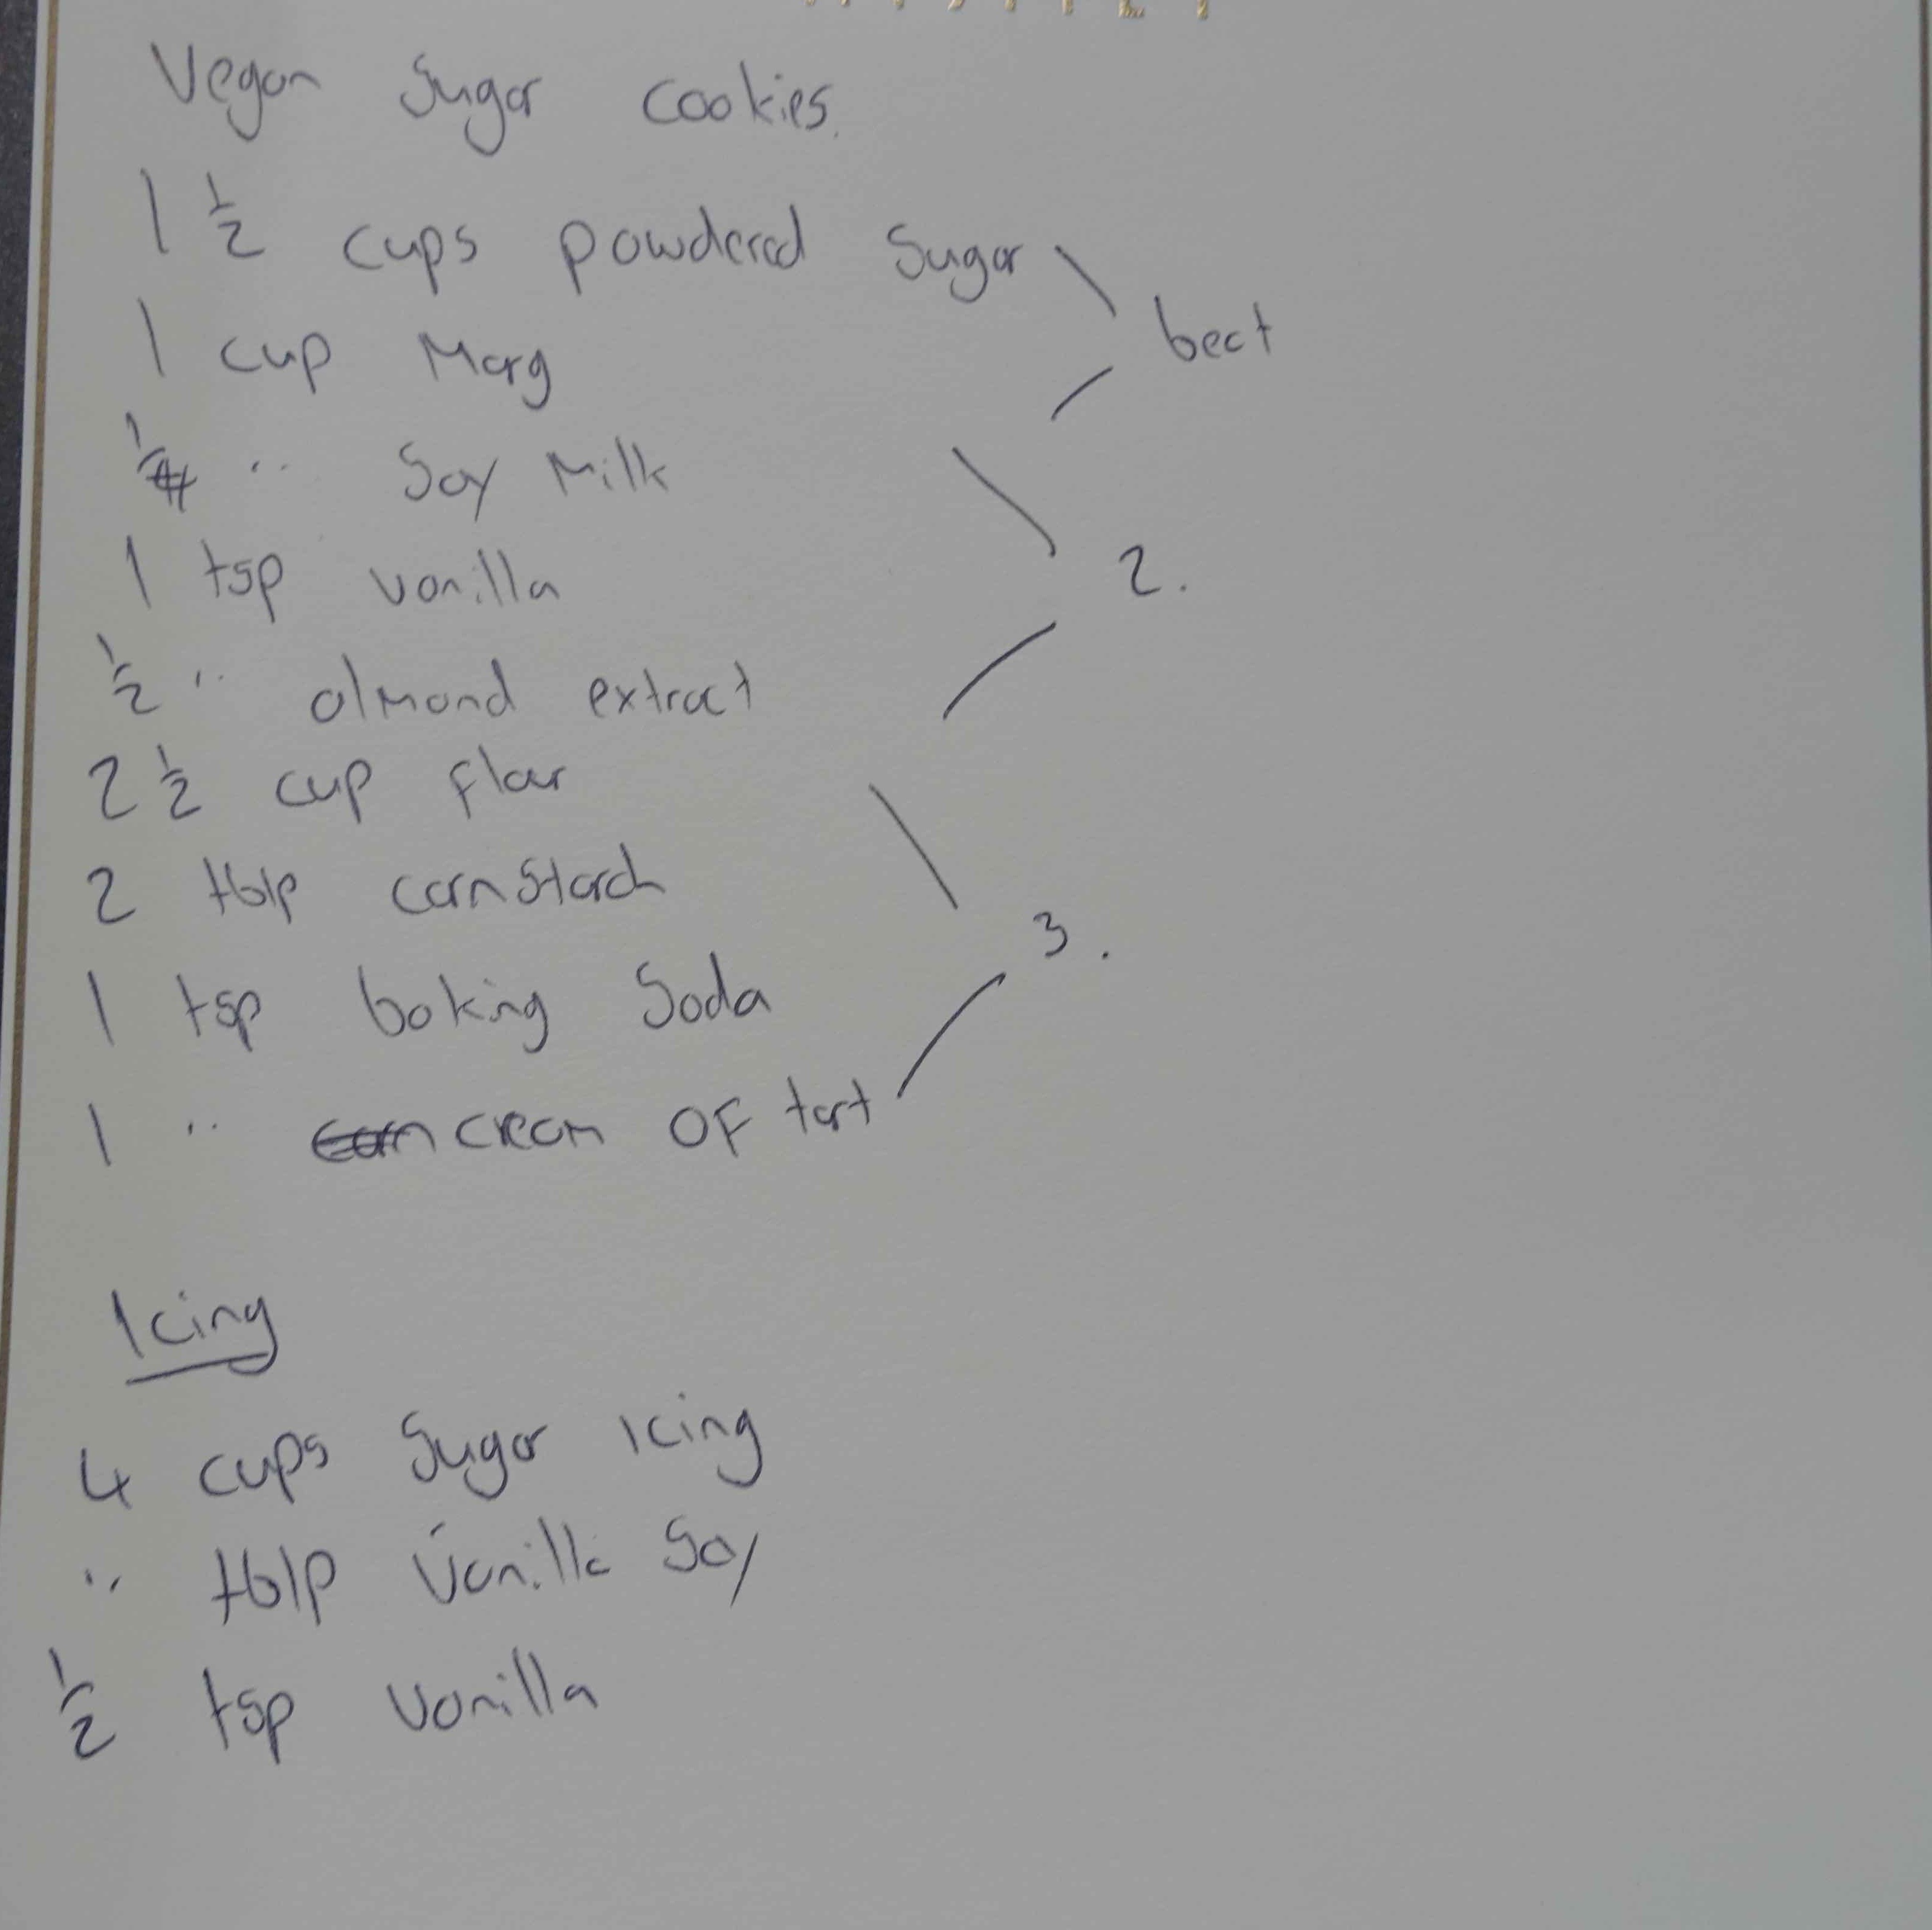 Vegan Sugar cookies.
1 1/2 cups powdered Sugar
beat
1 cup Marg
1/4 " Soy Milk
1 tsp vanilla
2.
1/2 " almond extract
2 1/2 cup flour
2 tblp cornstarch
3.
1 tsp baking Soda
1 " cream OF tart
Icing
4 cups Sugar Icing
" tblp Vanilla Soy
1/2 tsp Vanilla